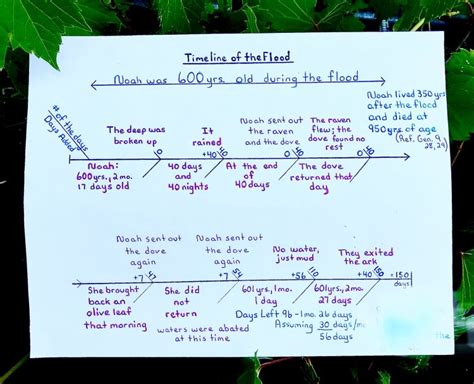 Timeline of the Flood
Noah was 600 yrs. old during the flood
Noah lived 350 yrs
after the flood
and died at
950 yrs of age
(Ref. Gen. 9
28,29)
# of the days
Days Added
The deep was
broken up
It
rained
+40
Noah sent out
the raven
and the dove
0
The raven
flew; the
dove found no
rest
0
Noah:
600 yrs., 2 mo.
17 days old
40 days
and
40 nights
At the end
of
40 days
The dove
returned that
day
Noah sent out
the dove
again
+7
47
Noah sent out
the dove
again
+7
54
No water,
just mud
+56
110
They exited
the ark
+40
+150
days
She brought
back an
olive leaf
that morning
She did
not
return
601 yrs., 1 mo.
1 day
601 yrs., 2 mo.
27 days
waters were abated
at this time
Days Left 9b - 1 mo. 26 days
Assuming 30 days/mo
56 days
the